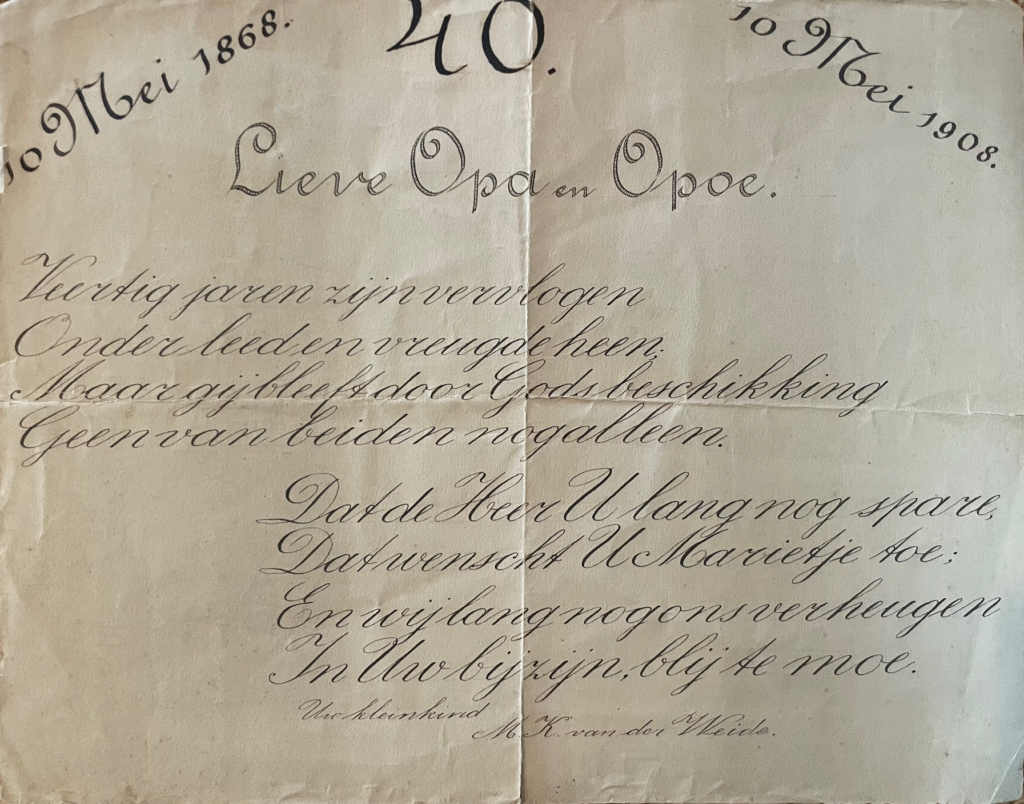 10 Mei 1868.
40.
10 Mei 1908.
Lieve Opa en Opoe.
Veertig jaren zijn vervlogen
Onder leed en vreugde heen;
Maar gij bleeft door Gods beschikking
Geen van beiden nog alleen.
Dat de Heer U lang nog spare,
Dat wenscht U Marietje toe;
En wij lang nog ons verheugen
In Uw bijzijn, blij te moe.
Uw kleinkind
M. K. van der Weide.